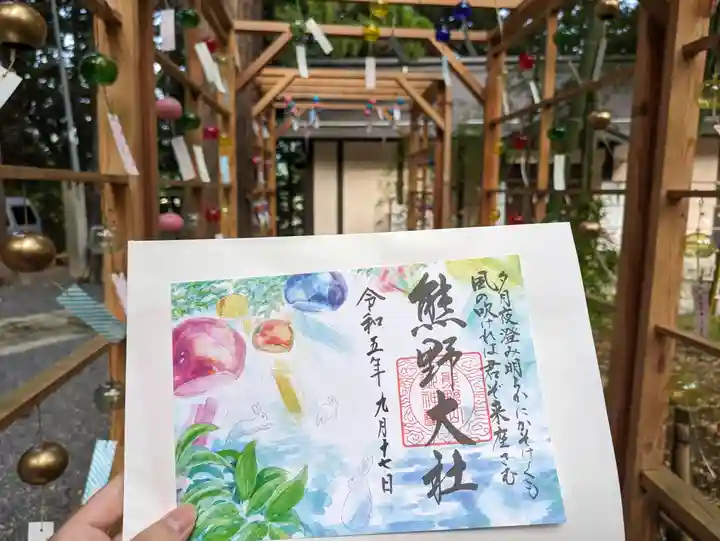 夕月夜澄み明らかにかそけくも
風の吹ければ君ぞ来座さむ
熊野大社
令和五年 九月十七日